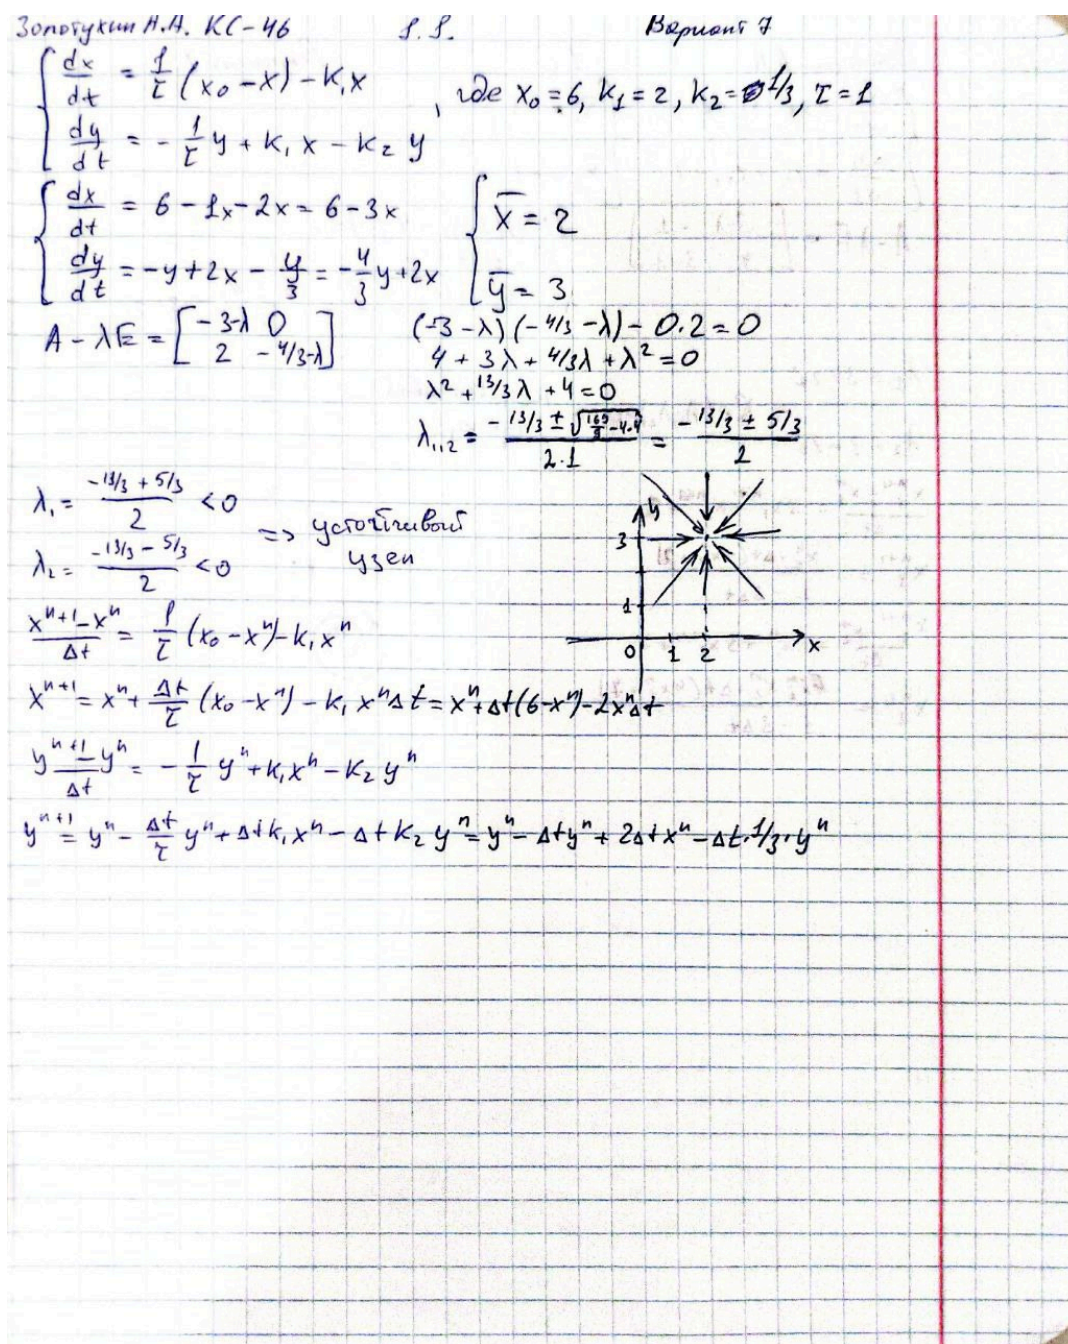 Золотухин А.А. КС-46 1.1. Вариант 7
{ dx/dt = 1/τ (x₀ - x) - k₁x
{ dy/dt = - 1/τ y + k₁x - k₂y
, где x₀ = 6, k₁ = 2, k₂ = 1/3, τ = 1
{ dx/dt = 6 - 1x - 2x = 6 - 3x
{ dy/dt = -y + 2x - y/3 = -4/3 y + 2x
{ x̄ = 2
{ ȳ = 3
A - λE = [ -3-λ 0
2 -4/3-λ ]
(-3 - λ)(-4/3 - λ) - 0·2 = 0
4 + 3λ + 4/3λ + λ² = 0
λ² + 13/3λ + 4 = 0
λ₁,₂ = (-13/3 ± √(169/9 - 4·4))/(2·1) = (-13/3 ± 5/3)/2
λ₁ = (-13/3 + 5/3)/2 < 0
λ₂ = (-13/3 - 5/3)/2 < 0
=> устойчивый
узел
y
3
1
0 1 2 x
(xⁿ⁺¹ - xⁿ)/Δt = 1/τ (x₀ - xⁿ) - k₁xⁿ
xⁿ⁺¹ = xⁿ + Δt/τ (x₀ - xⁿ) - k₁xⁿΔt = xⁿ + Δt(6 - xⁿ) - 2xⁿΔt
(yⁿ⁺¹ - yⁿ)/Δt = - 1/τ yⁿ + k₁xⁿ - k₂yⁿ
yⁿ⁺¹ = yⁿ - Δt/τ yⁿ + Δtk₁xⁿ - Δtk₂yⁿ = yⁿ - Δtyⁿ + 2Δtxⁿ - Δt·1/3·yⁿ